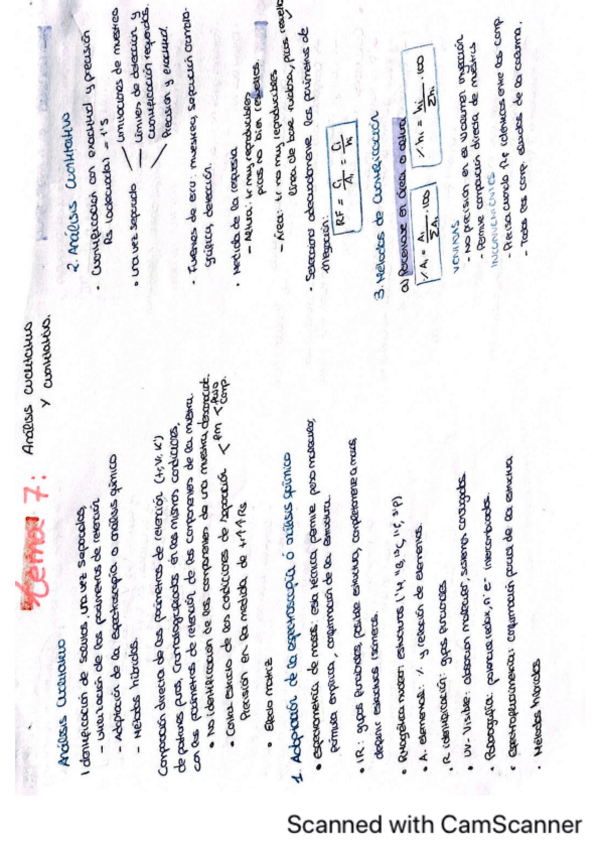 Tema 7: Análisis cualitativo
y cuantitativo.
Análisis cualitativo
Identificación de solutos, una vez separados,
- Utilización de los parámetros de retención
- Adaptación de la espectroscopía o análisis químico
- Métodos híbridos.
Comparación directa de los parámetros de retención (tr, Vr, K')
de patrones puros, cromatografiados en las mismas condiciones,
con los parámetros de retención de los componentes de la muestra
• No identificación de los componentes de una muestra desconocida.
• Control estricto de las condiciones de separación < fm < flujo comp.
Precisión en la medida de tr ↑↑ Rs
• Efecto matriz
1. Adaptación de la espectroscopía ó análisis químico
• Espectrometría de masas: esta técnica permite peso molecular,
fórmula empírica, confirmación de la estructura.
• IR: grupos funcionales, posible estructura, complementario a masas,
distinguir estructuras isómeros.
• R. magnética nuclear: estructuras
• A. elemental: % y relación de elementos.
• R. identificación: grupos funcionales
• UV-Visible: absorción molecular, sistemas conjugados.
• Polarografía: potencial redox, nº e⁻ intercambiados.
• Espectrofluorimetría: confirmación parcial de la estructura
• Métodos híbridos
2. Análisis cuantitativo
• Cuantificación con exactitud y precisión
Rs (adecuada) = 1'5
• Una vez separado
- Limitaciones de muestreo
- Límites de detección y
cuantificación requeridos.
- Precisión y exactitud.
• Fuentes de error: muestreo, separación cromato-
gráfica, detección.
• Medida de la respuesta
- Altura: tr muy reproducibles
picos no bien resueltos.
- Área: tr no muy reproducibles
línea de base ruidosa, picos resueltos
• Seleccionar adecuadamente los parámetros de
integración:
RF = Ci/Ai = Ci/hi
3. Métodos de cuantificación
a) Porcentaje en área o altura
% Ai = Ai/ΣAi · 100
% hi = hi/Σhi · 100
VENTAJAS
- No precisión en el volumen inyección
- Permite comparación directa de muestras
INCONVENIENTES
- Precisa cuando fie idénticos entre los comp.
- Todos los comp. eluidos de la columna.
Scanned with CamScanner